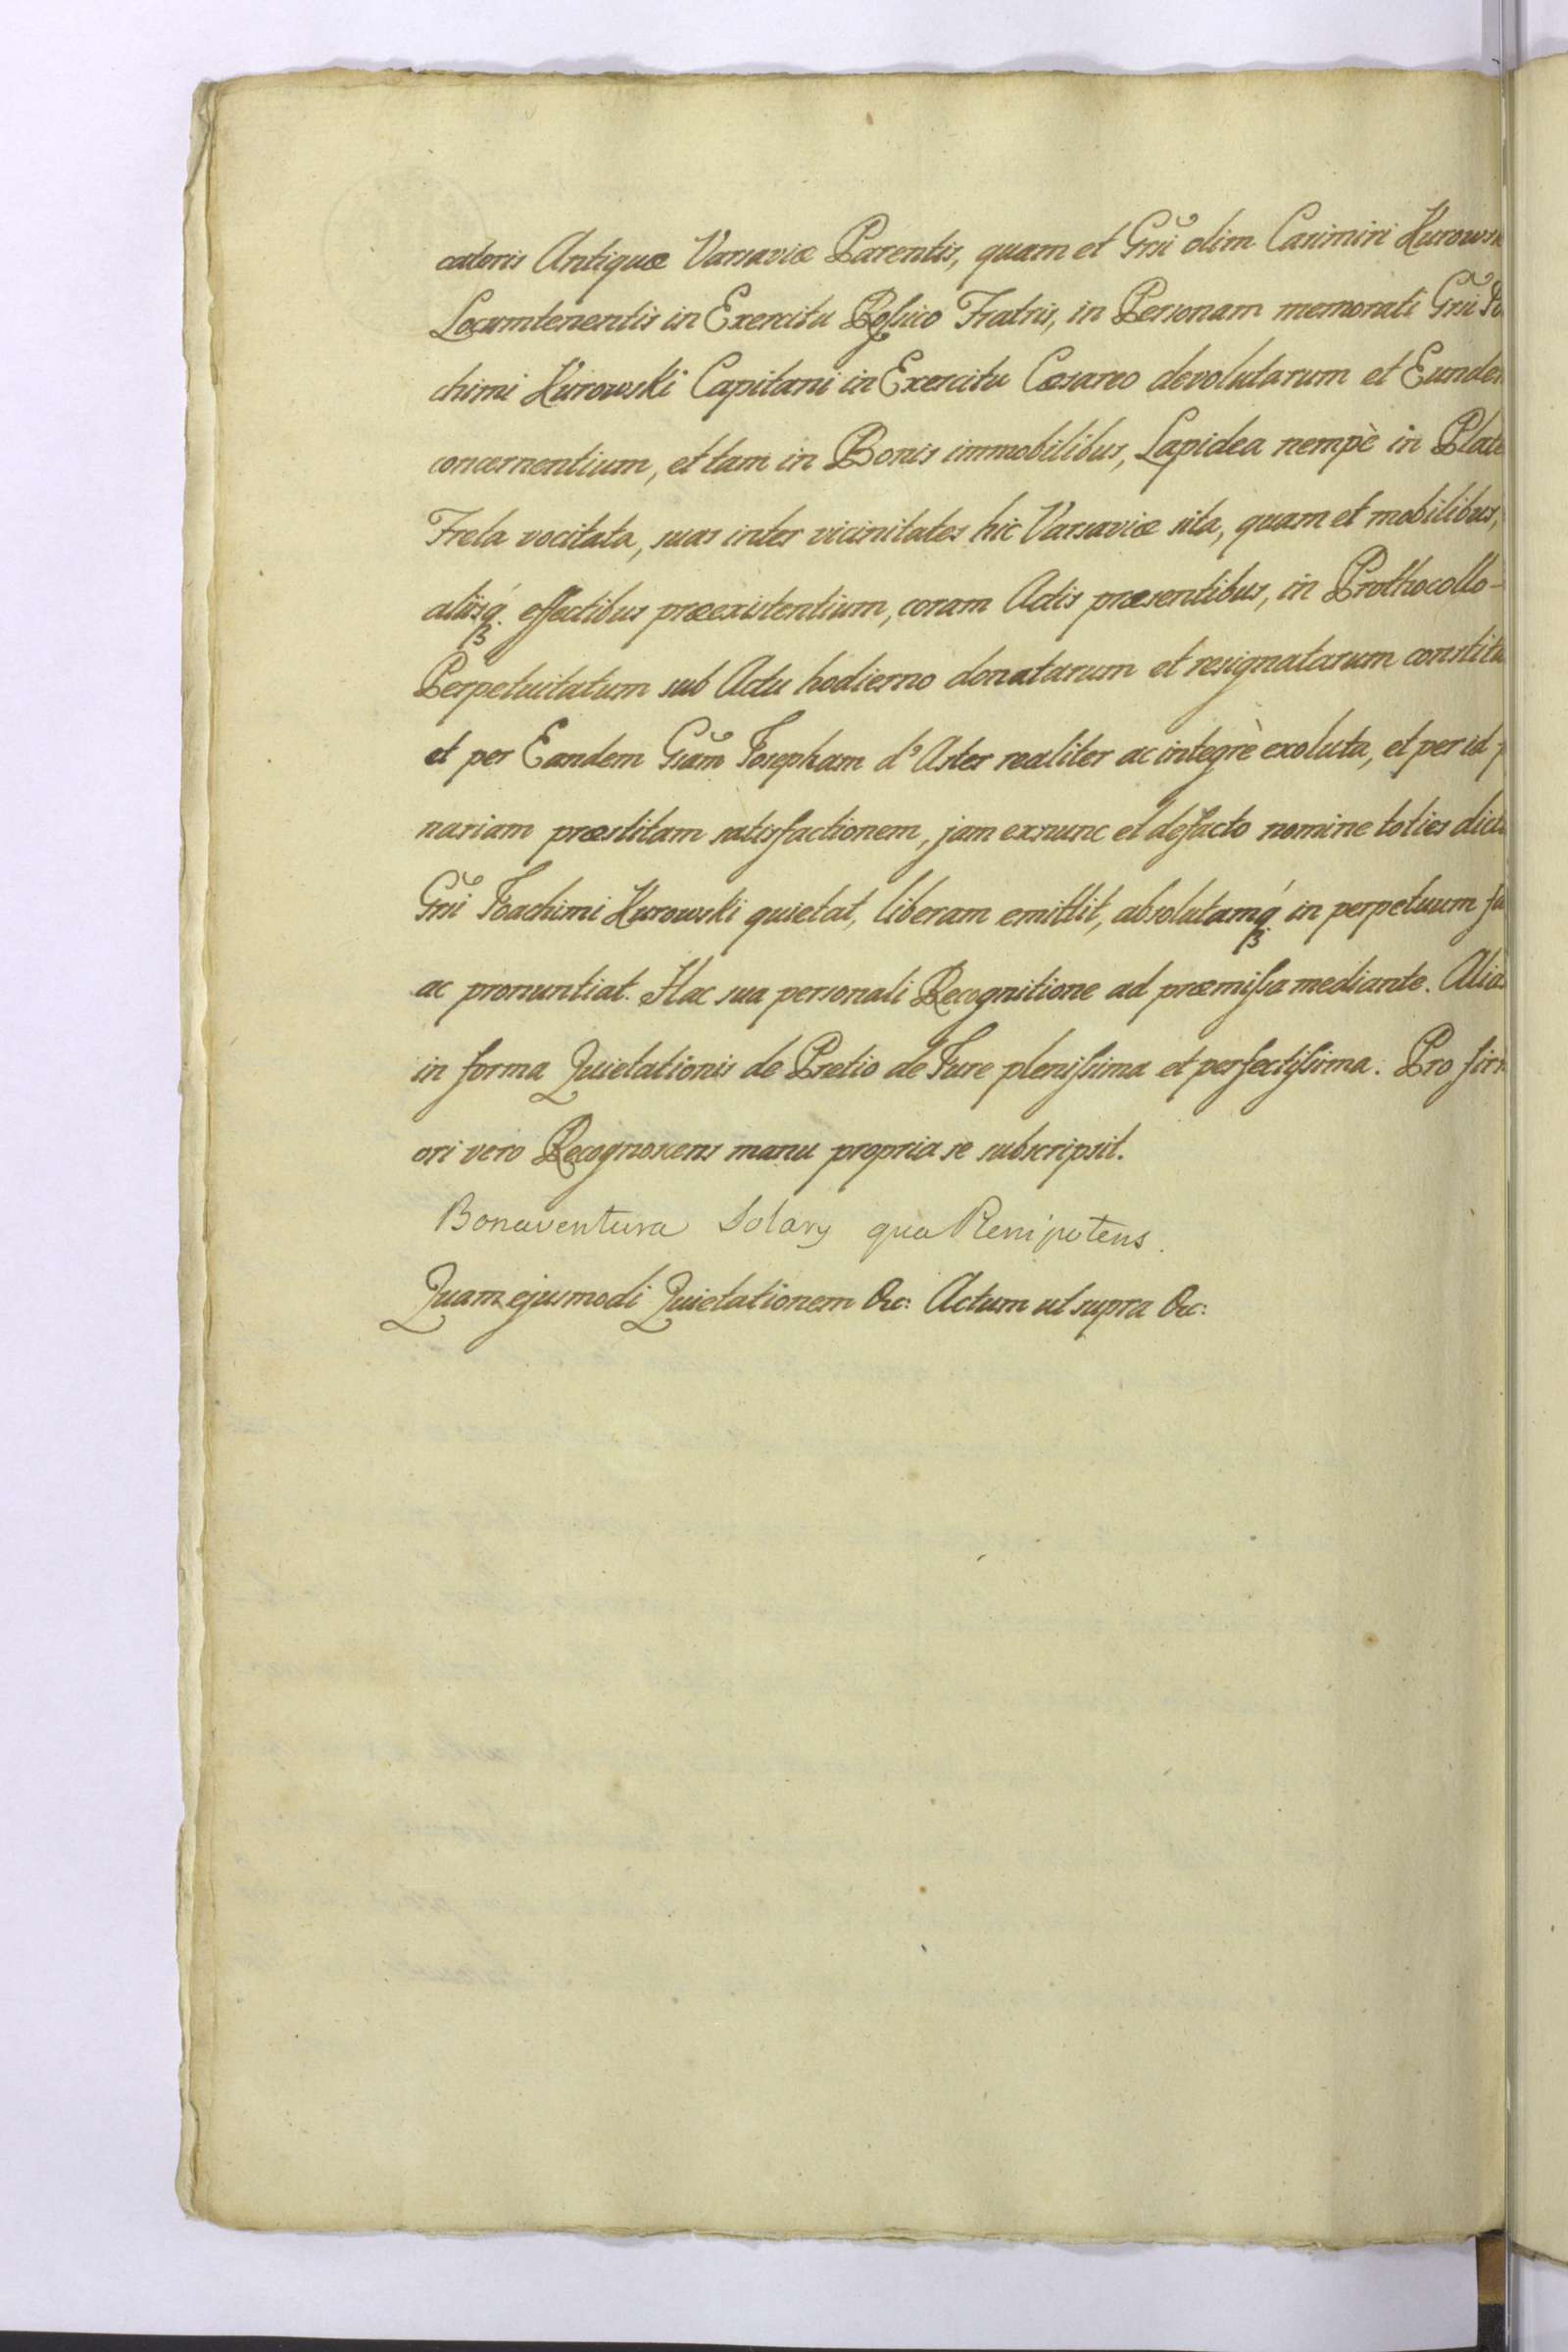 catoris Antiquæ Varsaviæ Parentis, quam et Grsi olim Casimiri Kurows
Locumtenentis in Exercitu Rossico Fratris, in Personam memorati Grsi Jo
chimi Kurowski Capitani in Exercitu Cæsareo devolutarum et Eunde
concernentium, et tam in Bonis immobilibus, Lapidea nempè in Plate
Freta vocitata, suas inter vicinitates hic Varsaviæ sita, quam et mobilibus,
aliisq. effectibus præexistentium, coram Actis præsentibus, in Prothocollo-
Perpetuitatum sub Actu hodierno donatarum et resignatarum constitu
et per Eandem Gsam Josepham d'Aster realiter ac integrè exoluta, et per id p
nariam præstitam satisfactionem, jam exnunc et defacto nomine toties dict
Grsi Joachimi Kurowski quietat, liberam emittit, absolutamq́ in perpetuum fa
ac pronuntiat. Hac sua personali Recognitione ad præmissa mediante. Alias
in forma Quietationis de Pretio de Jure plenissima et perfectissima. Pro firm
ori vero Recognoscens manu propria se subscripsit.
Bonaventura Solary qua Plenipotens.
Quam ejusmodi Quietationem &c: Actum ut supra &c: